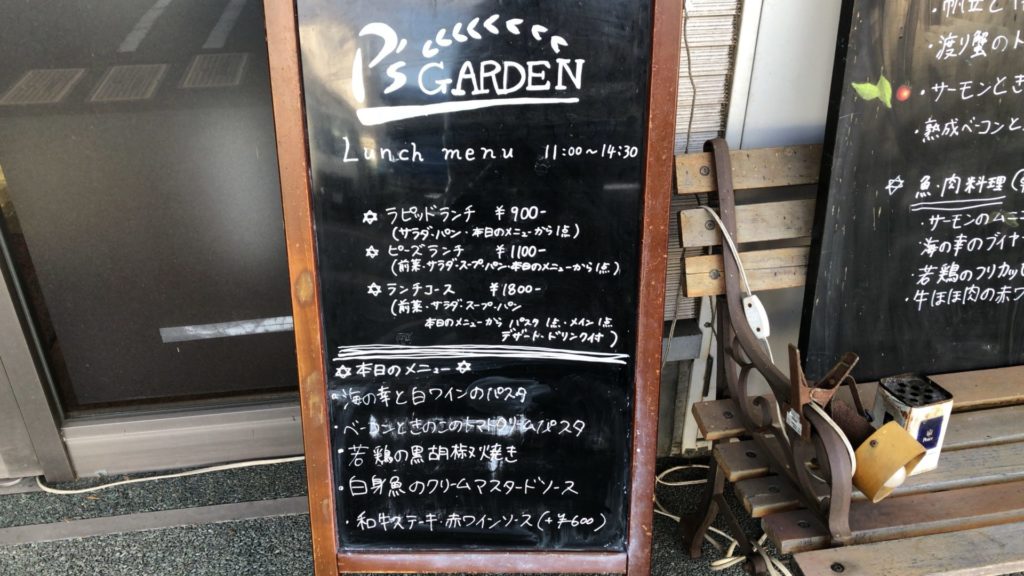 P's GARDEN
Lunch menu 11:00〜14:30
✡ラピッドランチ ¥900-
(サラダ・パン・本日のメニューから1点)
✡ピーズランチ ¥1100-
(前菜・サラダ・スープ・パン・本日のメニューから1点)
✡ランチコース ¥1800-
(前菜・サラダ・スープ・パン
本日のメニューから パスタ1点・メイン1点
デザート・ドリンク付)
✡本日のメニュー✡
・海の幸と白ワインのパスタ
・ベーコンときのこのトマトクリームパスタ
・若鶏の黒胡椒焼き
・白身魚のクリームマスタードソース
・和牛ステーキ・赤ワインソース(+¥600)
・帆立と
・渡り蟹のト
・サーモンとき
・熟成ベーコンと
✡魚・肉料理(
・サーモンのムニ
・海の幸のブイヤ
・若鶏のフリカッ
・牛ほほ肉の赤ワ